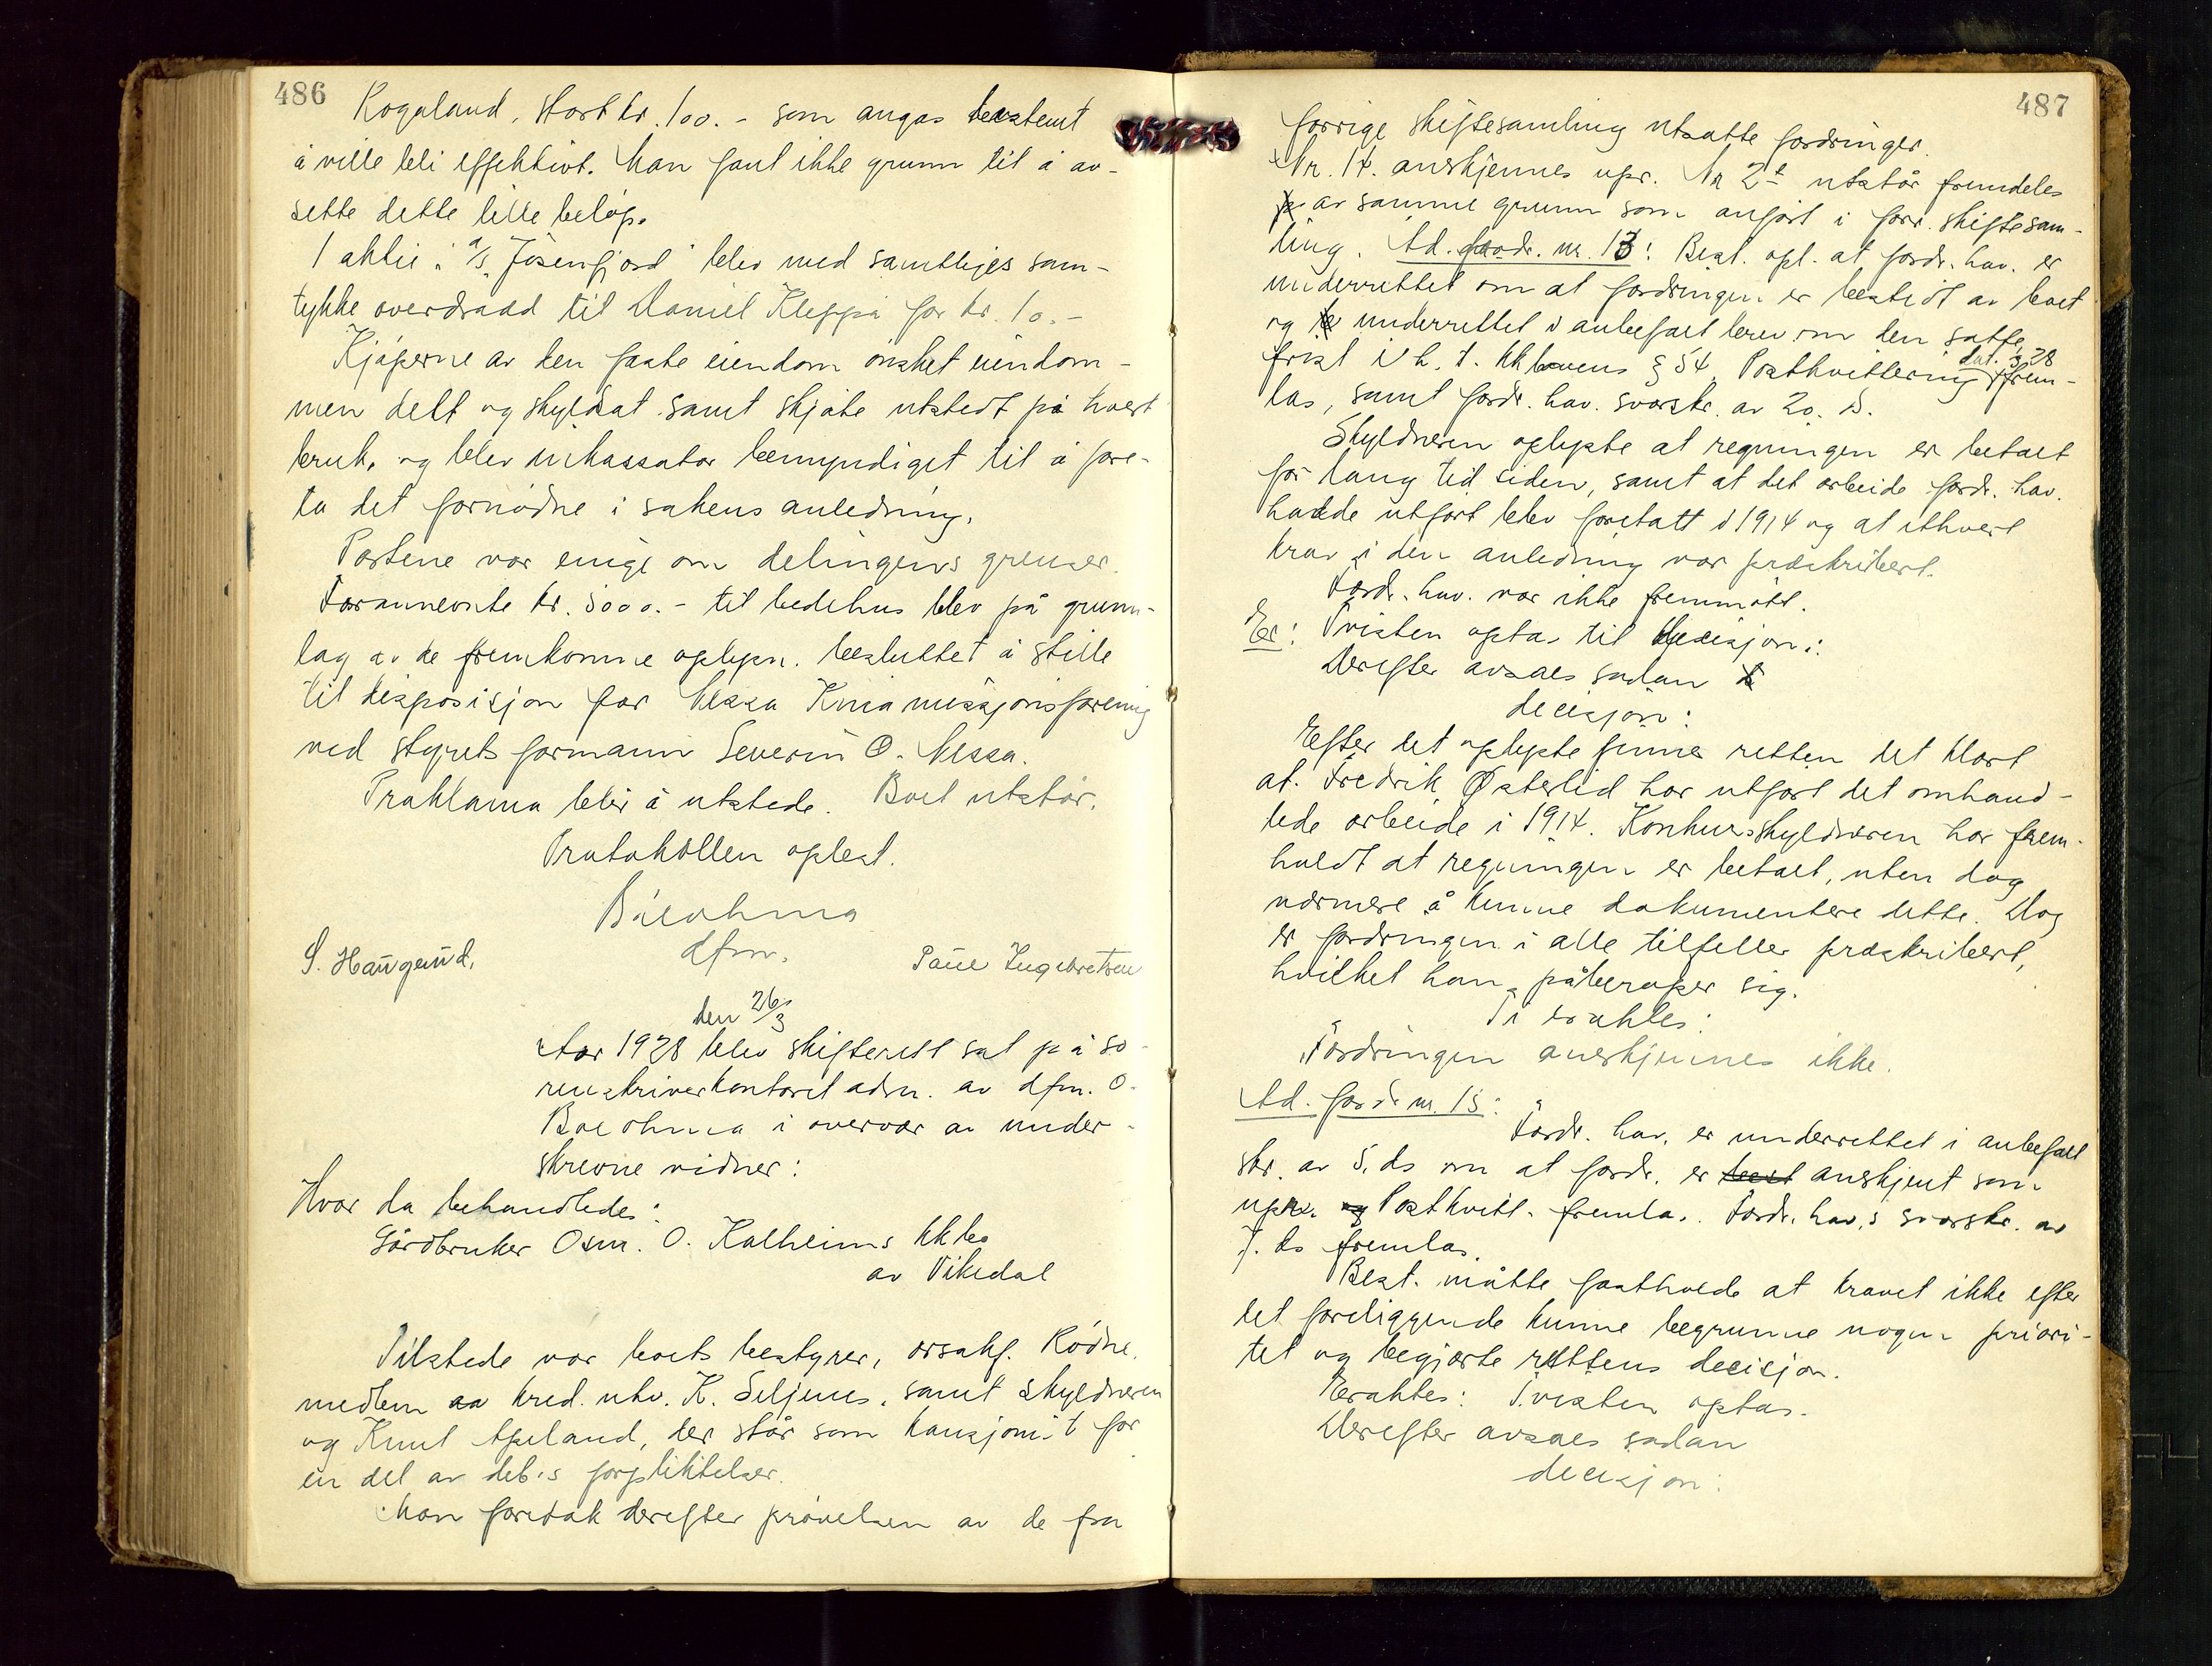 486
Rogaland, stort kr. 100.- som angas bestemt
å ville bli effektivt. Man fant ikke grunn til å av-
sette dette lille beløp.
1 aktie i a/s "Jøsenfjord" blev med samtliges sam-
tykke overdradd til Daniel Kleppa for kr. 10.-
Kjøperne av den faste eiendom ønsket eiendom-
men delt og skyldsat samt skjøte utstedt på hvert
bruk, og blev inkassator bemyndiget til å fore-
ta det fornødne i sakens anledning.
Partene var enige om delingens grenser.
Forannevnte kr. 5000.- til bedehus blev på grunn-
lag av de fremkomne oplysn. besluttet å stille
til disposisjon for Nessa Kinamissjonsforening
ved styrets formann Severin O. Nessa.
Proklama blir å utstede. Boet utstår.
Protokollen oplest.
Bøeohma
dfm.
S. Haugerud.
Paul Ingebretsen
den 26/3
Aar 1928 blev skifterett sat på so-
renskriverkontoret adm. av dfm. O.
Boeohma i overvær av under-
skrevne vidner:
Hvor da behandledes:
Gårdbruker Osm. O. Kalheims kkbo
av Vikedal
Tilstede var boets bestyrer, orsakf. Rødne,
medlem av kred. utv. K. Seljenes, samt skyldneren
og Knut Apeland, der står som kausjonist for
en del av deb.s forpliktelser.
Man foretok derefter prøvelsen av de fra
487
forrige skiftesamling utsatte fordringer.
Nr. 14. anerkjennes upr. Nr 2e utstår fremdeles
av samme grunn som anført i forr. skiftesam-
ling. Ad. fordr. nr. 13: Best. opl. at fordr. hav. er
underrettet om at fordringen er bestridt av boet
og underrettet i anbefalt brev om den satte
frist i h. t. kklovens § 54. Postkvittering dat. 3/28 frem-
las, samt fordr. hav. svarskr. av 20. s.
Skyldneren oplyste at regningen er betalt
for lang tid siden, samt at det arbeide fordr. hav.
hadde utført blev foretatt i 1914 og at ethvert
krav i den anledning var præskribert.
Fordr. hav. var ikke fremmøtt.
Er: Tvisten optas til decisjon:
Derefter avsaes sådan
decisjon:
Efter det oplyste finner retten det klart
at Fredrik Østerlid har utført det omhand-
lede arbeide i 1914. Konkursskyldneren har frem-
holdt at regningen er betalt, uten dog
nærmere å kunne dokumentere dette. Dog
er fordringen i alle tilfeller præskribert,
hvilket han påberoper sig.
Ti eraktes:
Fordringen anerkjennes ikke.
Ad. fordr nr. 15:
Fordr. hav. er underrettet i anbefalt
skr. av 5. ds om at fordr. er anerkjent som
upr. Postkvitt. fremla. Fordr. hav.s svarskr. av
7. ds fremlas.
Best. måtte fastholde at kravet ikke efter
det foreliggende kunne begrunne nogen priori-
tet og begjærte rettens decisjon.
Eraktes: Tvisten optas.
Derefter avsaes sådan
decisjon: